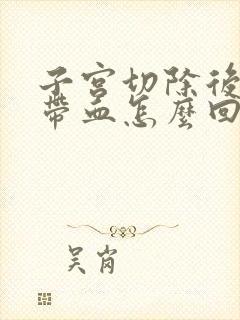 子宫切除後
帶血怎麼回
吴肖